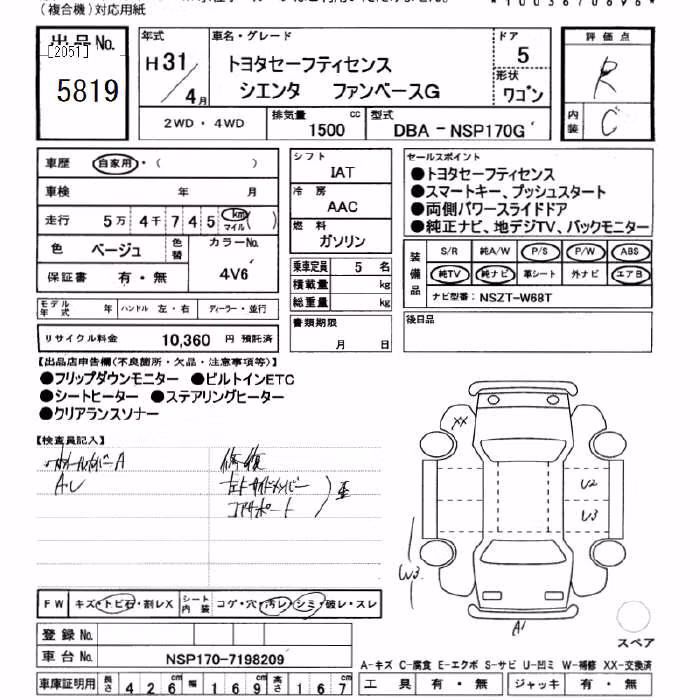 (複合機)対応用紙
出品No.
[2051]
5819
年式
H31/4月
車名・グレード
トヨタセーフティセンス
シエンタ ファンベースG
ドア
5
形状
ワゴン
2WD・4WD
排気量 1500 cc
型式 DBA-NSP170G
評価点
R
内装 C
車歴 自家用・( )
車検 年 月
走行 5万 4千 7 4 5 km マイル ( )
色 ベージュ 色替 カラーNo. 4V6
保証書 有・無
モデル年式 年 ハンドル 左・右 ディーラー・並行
リサイクル料金 10,360 円 預託済
シフト
IAT
冷房
AAC
燃料
ガソリン
乗車定員 5 名
積載量 kg
総重量 kg
書類期限
月 日
セールスポイント
●トヨタセーフティセンス
●スマートキー、プッシュスタート
●両側パワースライドドア
●純正ナビ、地デジTV、バックモニター
装備品
S/R 純A/W P/S P/W ABS
純TV 純ナビ 革シート 外ナビ エアB
ナビ型番: NSZT-W68T
後日品
【出品店申告欄(不良箇所・欠品・注意事項等)】
●フリップダウンモニター ●ビルトインETC
●シートヒーター ●ステアリングヒーター
●クリアランスソナー
【検査員記入】
修復
コアサポート
歪
XX
U2
U3
W3
A1
スペア
FW キズ・トビ石・割レX シート内装 コゲ・穴・汚レ・シミ・破レ・スレ
登録No.
車台No. NSP170-7198209
車庫証明用 長さ 4 2 6 cm 幅 1 6 9 cm 高さ 1 6 7 cm
A-キズ C-腐食 E-エクボ S-サビ U-凹ミ W-補修 XX-交換済
工具 有・無 ジャッキ 有・無